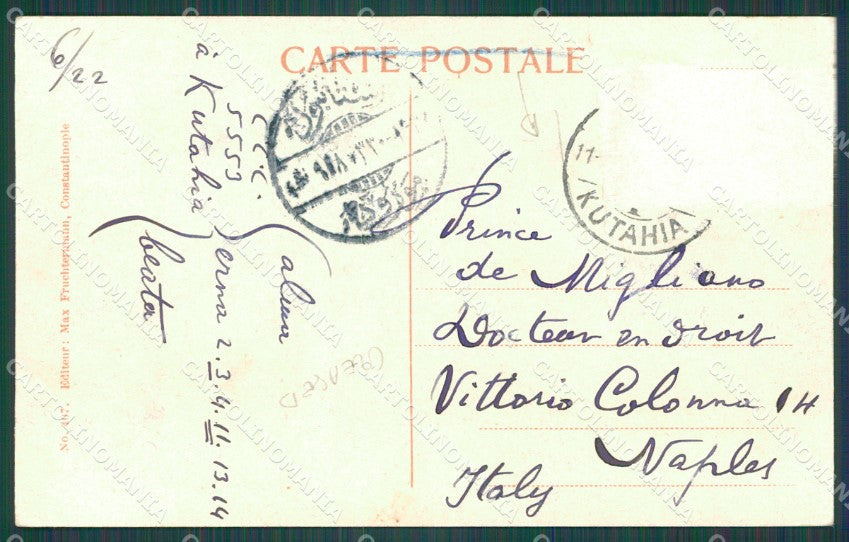 CARTE POSTALE
6/22
C.C.C.
5559
à Kutahia
(alma
erna 2.3.4.11.13.14
(beata
Prince
de Migliano
Docteur en droit
Vittorio Colonna 14
Naples
Italy
11-
KUTAHIA
Editeur: Max Fruchtermann, Constantinople
CARTOLINOMANIA